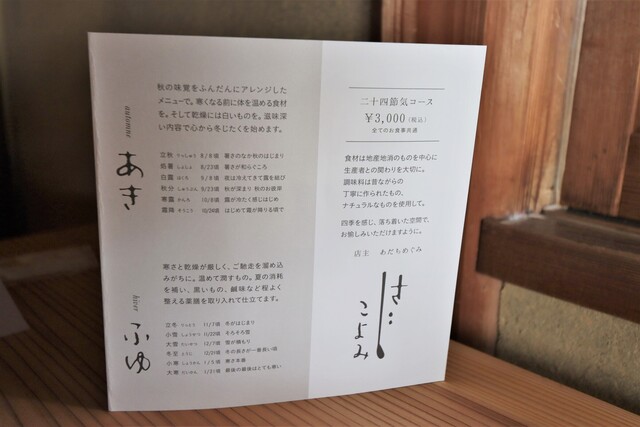 autumne
あき
秋の味覚をふんだんにアレンジした
メニューで。寒くなる前に体を温める食材
を。そして乾燥には白いものを。滋味深
い内容で心から冬じたくを始めます。
立秋 りっしゅう 8/8頃 暑さのなか秋のはじまり
処暑 しょしょ 8/23頃 暑さが和らぐころ
白露 はくろ 9/8頃 夜は冷えてきて露を結び
秋分 しゅうぶん 9/23頃 秋が深まり 秋のお彼岸
寒露 かんろ 10/8頃 露が冷たく感じはじめ
霜降 そうこう 10/26頃 はじめて霜が降りる頃で
hiver
ふゆ
寒さと乾燥が厳しく、ご馳走を溜め込
みがちに。温めて潤すもの。夏の消耗
を補い、黒いもの、鹹味など程よく
整える薬膳を取り入れて仕立てます。
立冬 りっとう 11/7頃 冬がはじまり
小雪 しょうせつ 11/22頃 そろそろ雪
大雪 たいせつ 12/7頃 雪が積もり
冬至 とうじ 12/21頃 冬の長さが一番長い頃
小寒 しょうかん 1/5頃 寒さ本番
大寒 だいかん 1/21頃 最後の最後はとても寒い
二十四節気コース
¥3,000(税込)
全てのお食事共通
食材は地産地消のものを中心に
生産者との関わりを大切に。
調味料は昔ながらの
丁寧に作られたもの、
ナチュラルなものを使用して。
四季を感じ、落ち着いた空間で、
お愉しみいただけますように。
店主 あだちめぐみ
こよみ